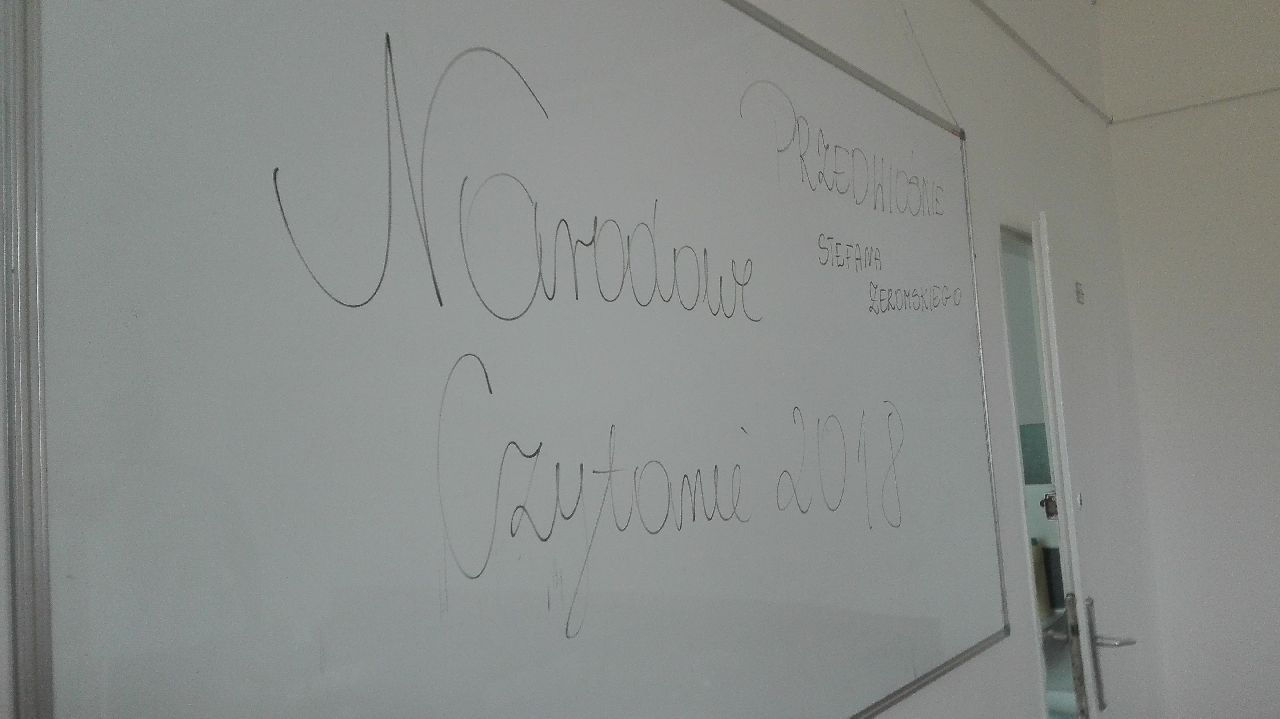 Narodowe
Czytanie 2018
PRZEDWIOŚNIE
STEFANA
ŻEROMSKIEGO